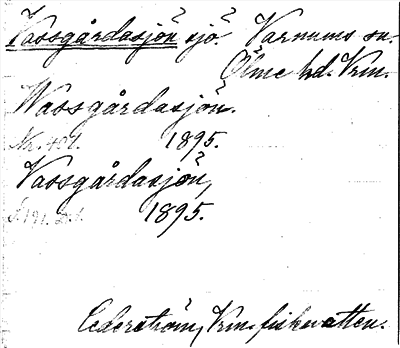 Vassgårdasjön sjö. Varnums sn.
Ölme hd. Vrm.
Wassgårdasjön.
1895.
Vassgårdasjön,
1895.
Cederström, Vrm. fiskevatten.